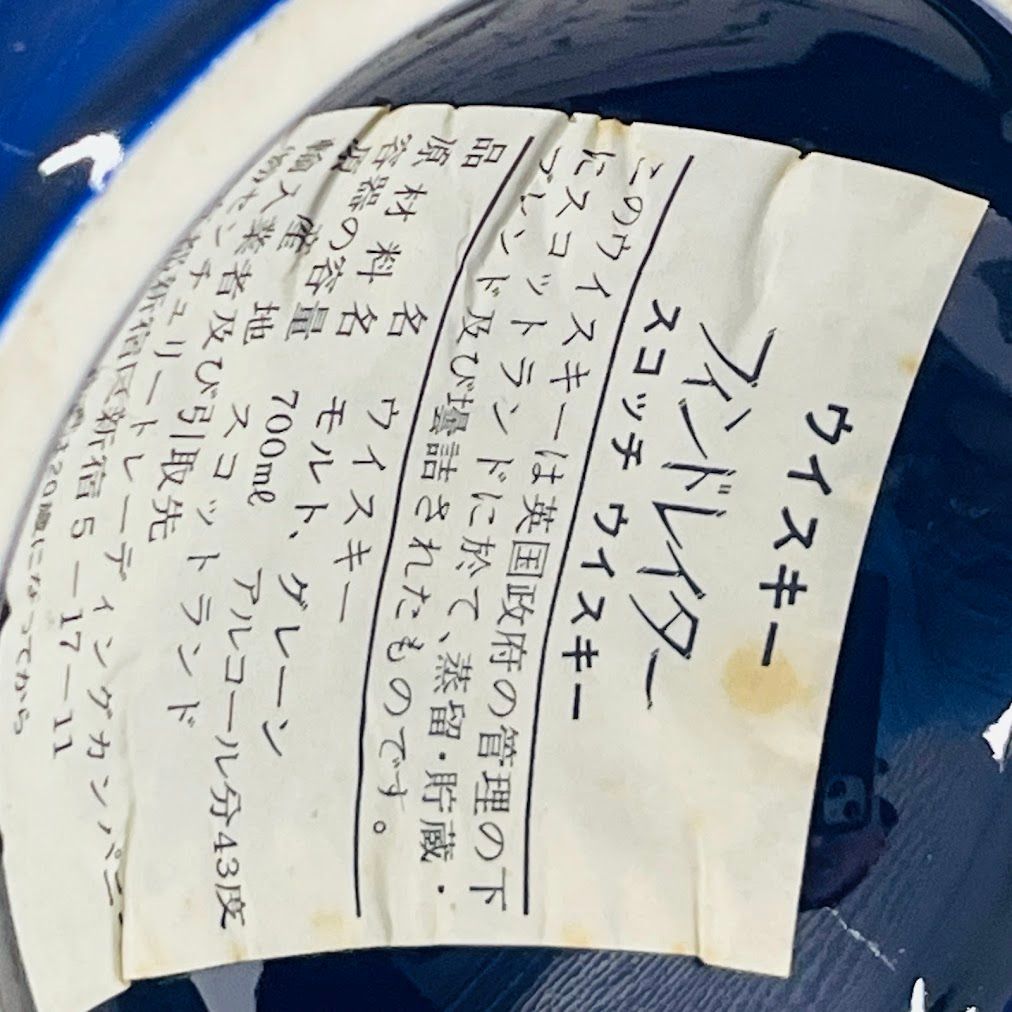 ウイスキー
フィンドレイター
スコッチ ウイスキー
このウイスキーは英国政府の管理の下
にスコットランドに於て、蒸留・貯蔵・
ブレンド及び壜詰されたものです。
品名 ウイスキー
原材料名 モルト、グレーン
容器の容量 700mℓ アルコール分43度
原産地 スコットランド
輸入業者及び引取先
センチュリートレーディングカンパニー
新宿区新宿5-17-11
20歳になってから